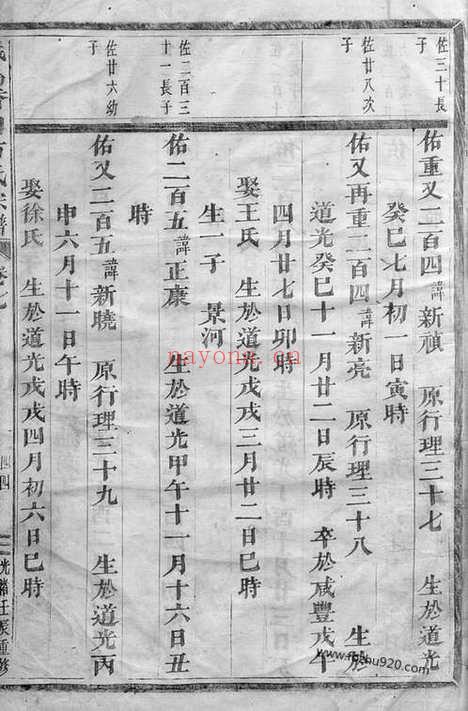 佐三十長
子
佑重又二百四諱新禎　原行理三十七　生於道光
癸巳七月初一日寅時
佐廿八次
子
佑又再重二百四諱新亮　原行理三十八　生於
道光癸巳十一月廿二日辰時　卒於咸豐戊午
四月廿七日卯時
娶王氏　生於道光戊戌三月廿二日巳時
生一子　景河
佐二百三
十一長子
佑二百五諱正康　生於道光甲午十一月十六日丑
時
佐廿六幼
子
佑又二百五諱新曉　原行理三十九　生於道光丙
申六月十一日午時
娶徐氏　生於道光戊戌四月初六日巳時
氏宗譜　卷七　四　光緒壬辰重修
nayong.cn
www.fushu920.com